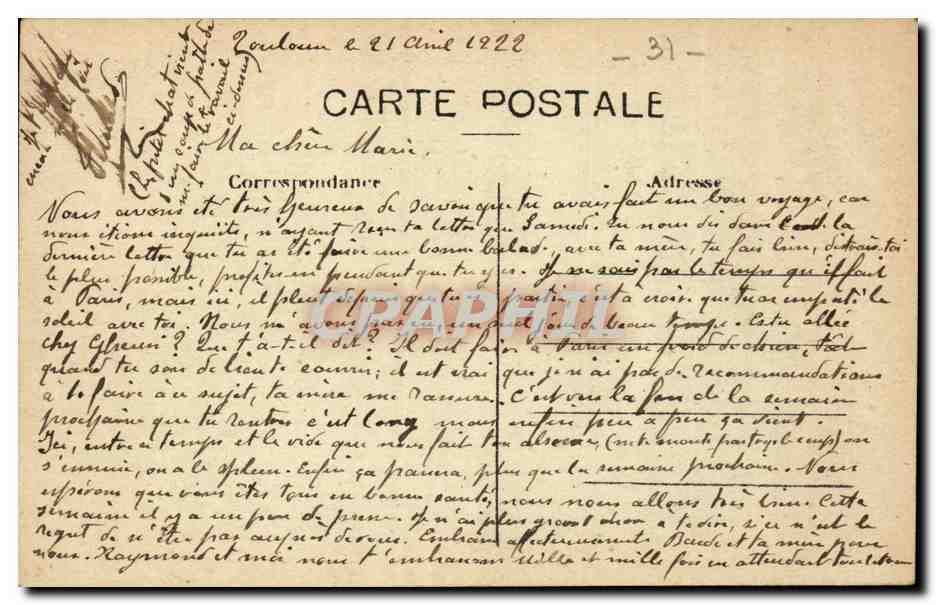 Toulouse le 21 Avril 1922
- 31 -
CARTE POSTALE
Ma chère Marie,
Correspondance
Adresse
Nous avons été très heureux de savoir que tu avais fait un bon voyage, car
nous étions inquiets, n'ayant reçu ta lettre que Samedi. Tu nous dis dans la
dernière lettre que tu as été faire une bonne balade, avec ta mère, tu fais bien, distrais-toi
le plus possible, profites-en pendant que tu y es. Je ne sais pas le temps qu'il fait
à Paris, mais ici, il pleut depuis que tu es partie, c'est à croire que tu as emporté le
soleil avec toi. Nous n'avons pas eu un seul jour de beau temps. Es-tu allée
chez ? Que t'a-t-il dit ? Il doit faire à Paris un froid de chien,
quand tu sors de te couvrir; il est vrai que je n'ai pas de recommandations
à te faire à ce sujet, ta mère me rassure. C'est vers la fin de la semaine
prochaine que tu rentres c'est long mais enfin peu à peu ça vient.
Ici, entre le temps et le vide que nous fait ton absence, (ne te monte pas trop le coup) on
s'ennuie, on a le spleen. Enfin ça passera, plus que la semaine prochaine. Nous
espérons que vous êtes tous en bonne santé, nous nous allons très bien. Cette
semaine il y a un peu de presse. Je n'ai plus grand chose à te dire, si ce n'est le
regret de n'être pas auprès de vous. Embrasse affectueusement et ta mère pour
nous. Raymond et moi nous t'embrassons mille et mille fois en attendant ton retour
CRAPHIL